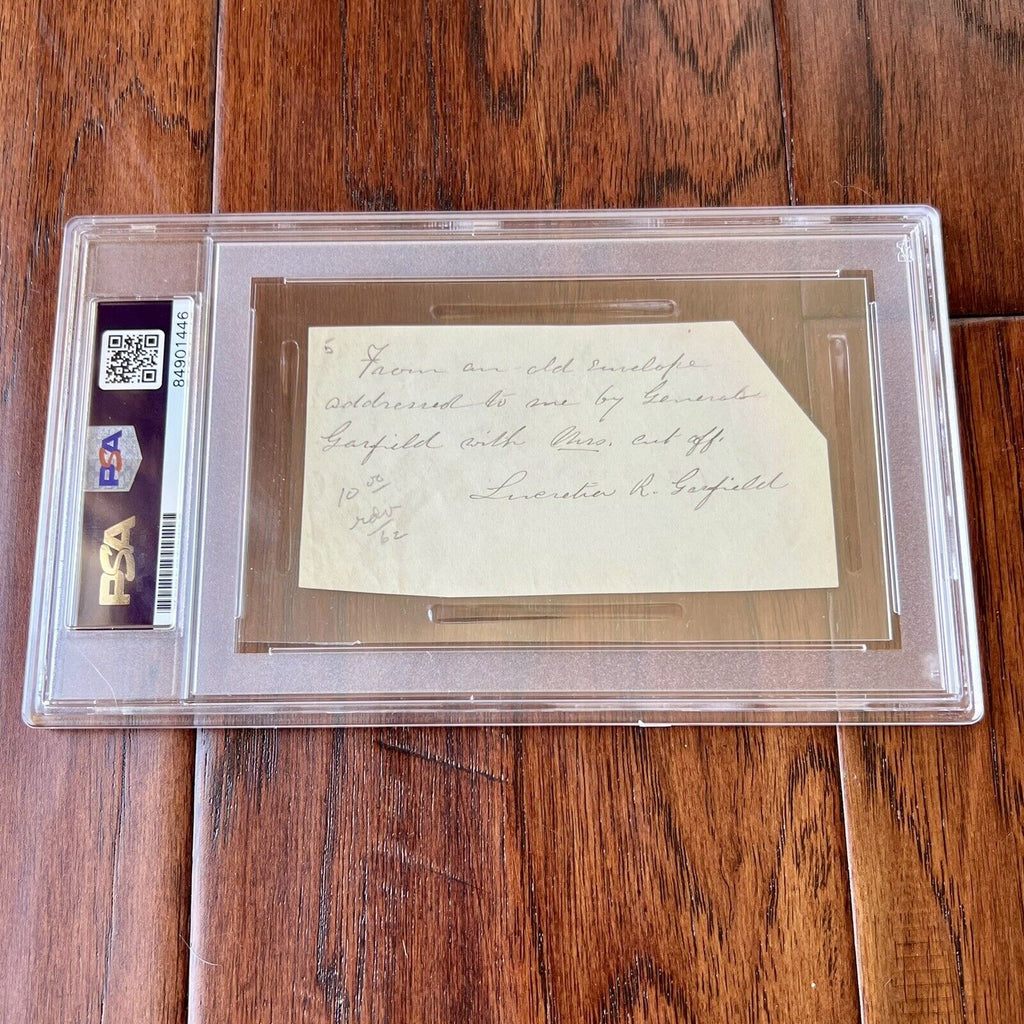 5
From an old Envelope
addressed to me by General
Garfield with Mrs. cut off.
Lucretia R. Garfield
10 00/
/62
84901446
PSA
PSA